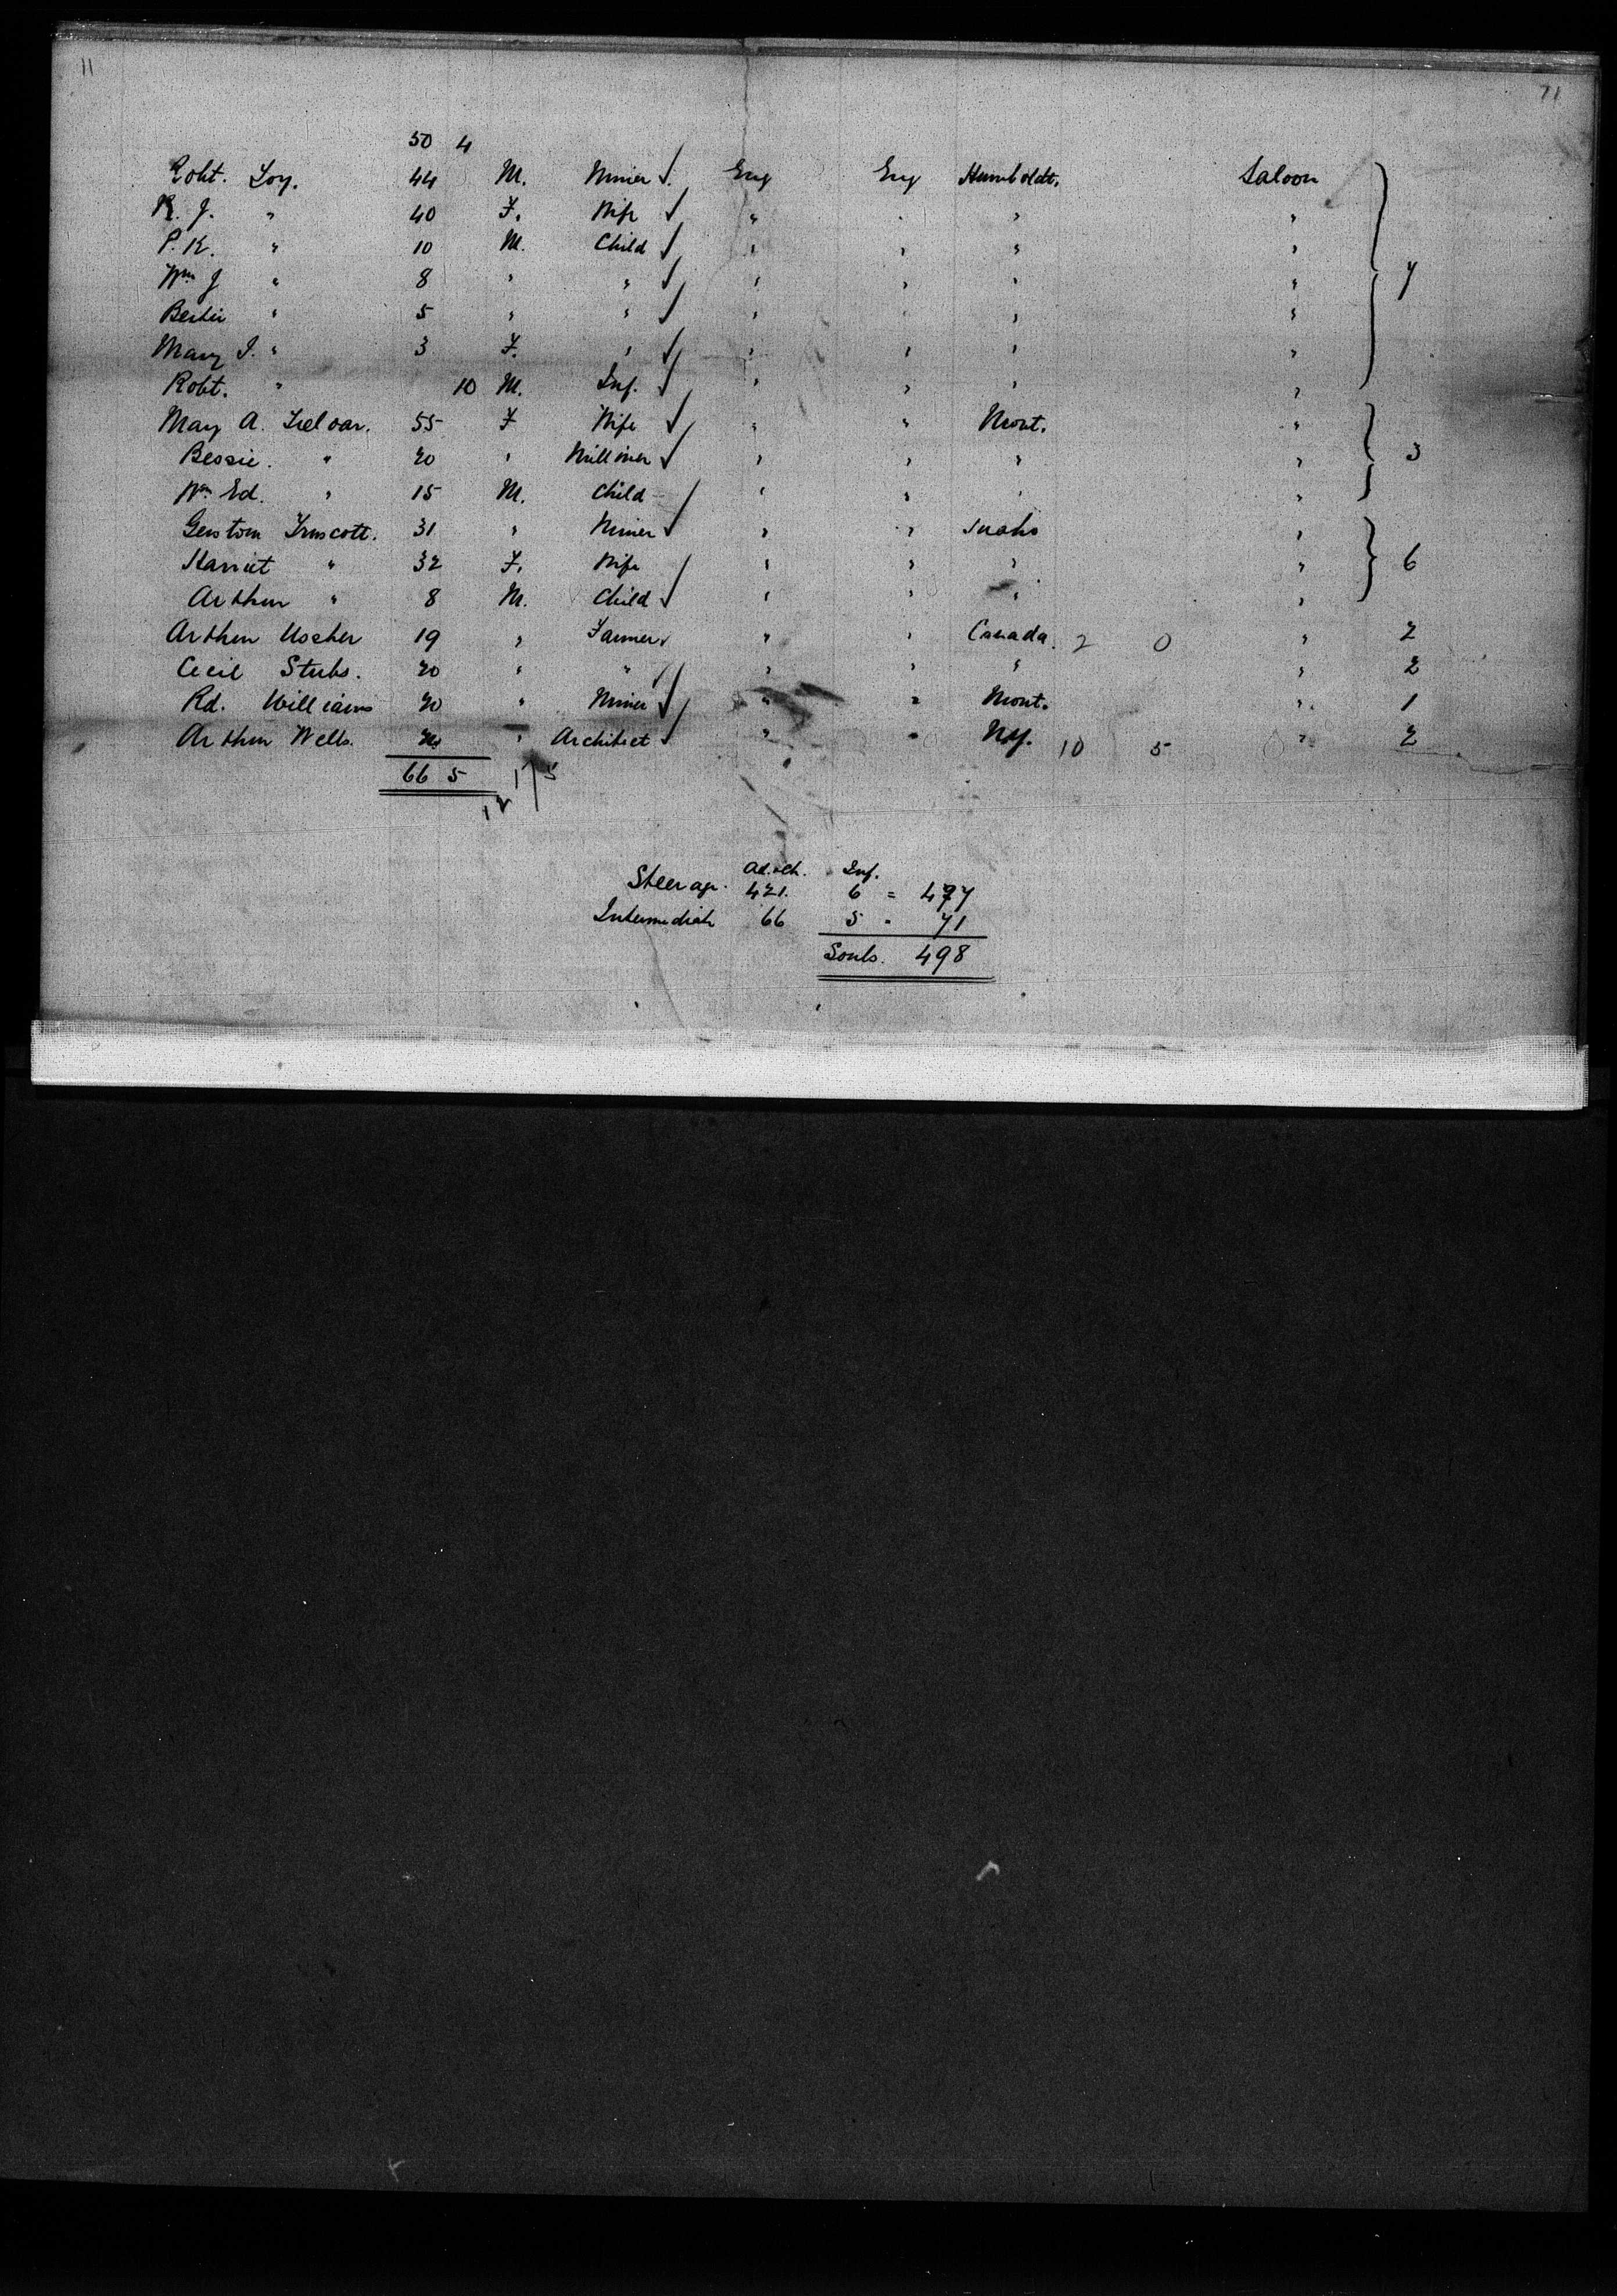 11 71
50 4
Robt. Loy. 44 M. Miner Eng Eng Humboldt. Saloon
R. J. " 40 F. Wife " " " "
P. K. " 10 M. Child " " " " 
Wm J " 8 " " " " " " 7
Bertie " 5 " " " " "
Mary I. " 3 F. " " " " "
Robt. " 10 M. Inf. " " " "
Mary A. Treloar. 55 F Wife " " Mont. "
Bessie. " 20 " Milliner " " " " 3
Wm Ed. " 15 M. Child " " " "
Truscott. 31 " Miner " " "
Harriet " 32 F. Wife " " " " 6
Arthur " 8 M. Child " " " "
Arthur Uscher 19 " Farmer " " Canada. 2 0 " 2
Cecil Stubs. 20 " " " " " " 2
Rd. Williams 20 " Miner " " Mont. " 1
Arthur Wells. " Architect " " NY. 10 5 " 2
66 5
Ad.&Ch. Inf.
Steerage. 421. 6 = 427
Intermediate 66 5 " 71
Souls. 498